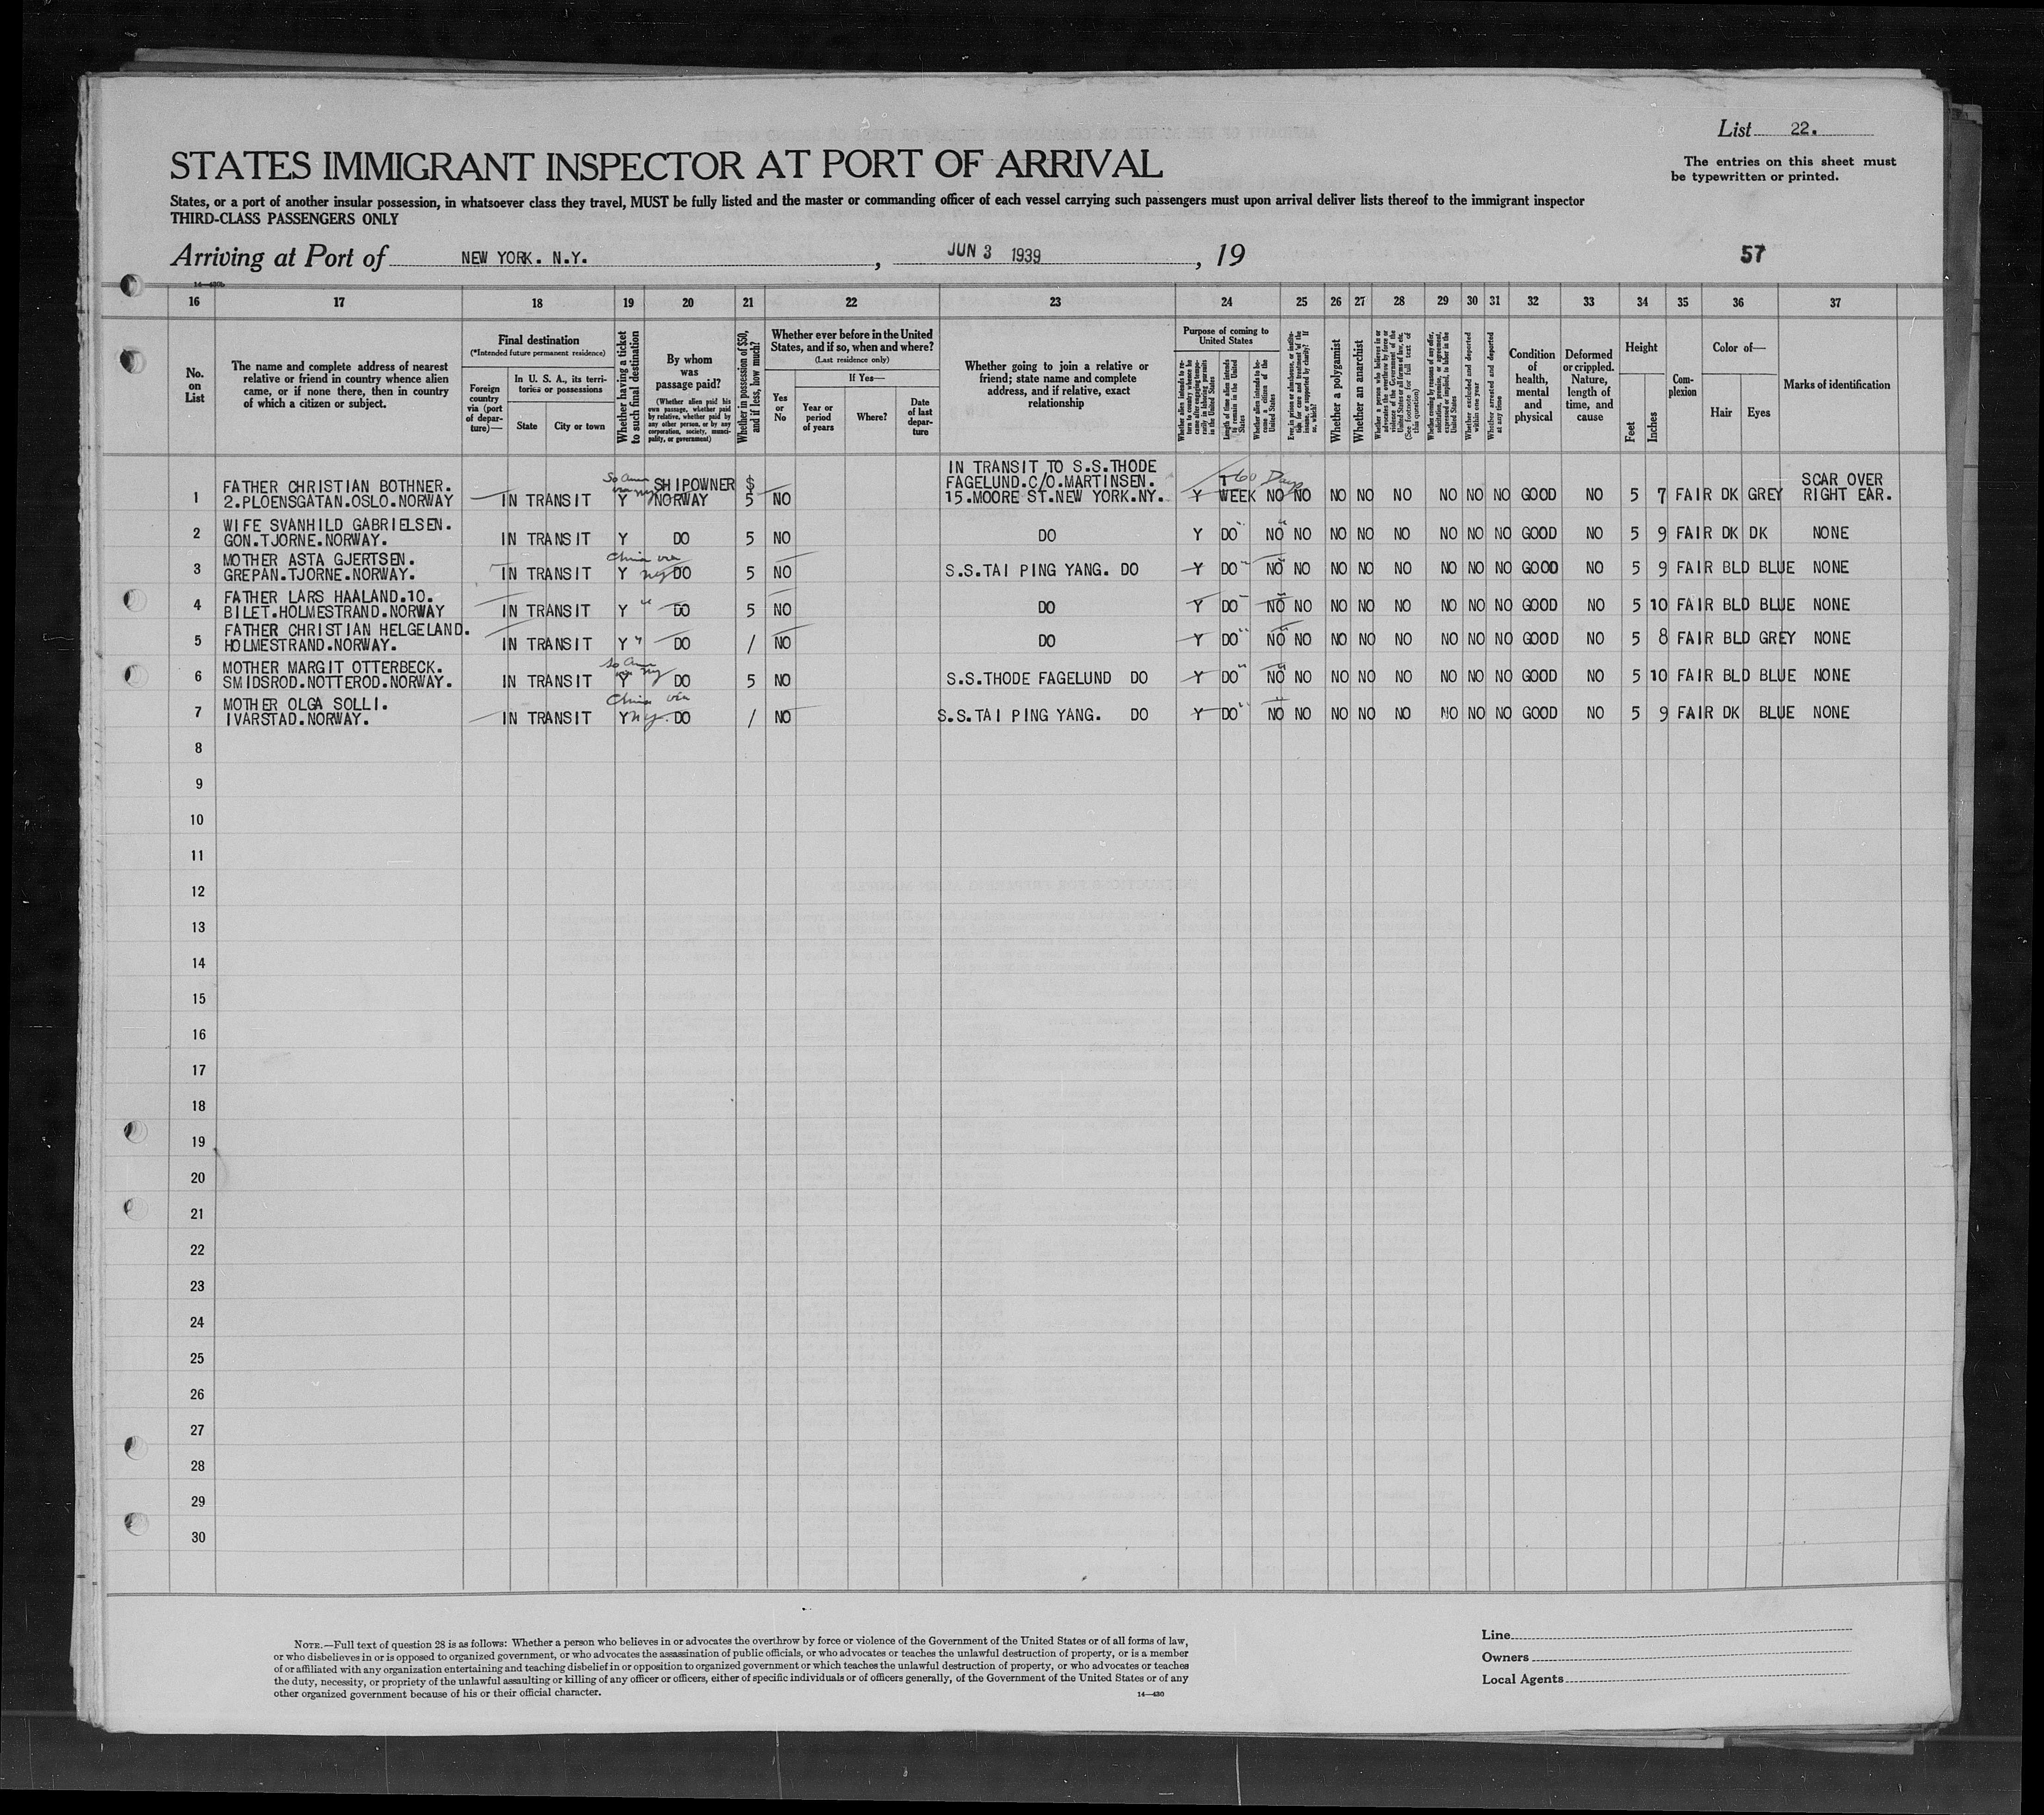 List 22.
The entries on this sheet must
be typewritten or printed.
STATES IMMIGRANT INSPECTOR AT PORT OF ARRIVAL
States, or a port of another insular possession, in whatsoever class they travel, MUST be fully listed and the master or commanding officer of each vessel carrying such passengers must upon arrival deliver lists thereof to the immigrant inspector
THIRD-CLASS PASSENGERS ONLY
Arriving at Port of NEW YORK. N.Y. , JUN 3 1939 , 19 57
16 17 18 19 20 21 22 23 24 25 26 27 28 29 30 31 32 33 34 35 36 37
No. on List
The name and complete address of nearest
relative or friend in country whence alien
came, or if none there, then in country
of which a citizen or subject.
Final destination
(*Intended future permanent residence)
Foreign country via (port of departure)—
In U. S. A., its territories or possessions
State
City or town
Whether having a ticket to such final destination
By whom was passage paid?
(Whether alien paid his own passage, whether paid by relative, whether paid by any other person, or by any corporation, society, municipality, or government)
Whether in possession of $50, and if less, how much?
Whether ever before in the United States, and if so, when and where?
(Last residence only)
Yes or No
If Yes—
Year or period of years
Where?
Date of last departure
Whether going to join a relative or
friend; state name and complete
address, and if relative, exact
relationship
Purpose of coming to United States
Whether alien intends to return to country whence he came after engaging temporarily in laboring pursuits in the United States
Length of time alien intends to remain in the United States
Whether alien intends to become a citizen of the United States
Ever in prison or almshouse, or institution for care and treatment of the insane, or supported by charity? If so, which?
Whether a polygamist
Whether an anarchist
Whether a person who believes in or advocates the overthrow by force or violence of the Government of the United States or all forms of law, etc. (See footnote for full text of this question)
Whether coming by reasons of any offer, solicitation, promise, or agreement, expressed or implied, to labor in the United States
Whether excluded and deported within one year
Whether arrested and deported at any time
Condition of health, mental and physical
Deformed or crippled. Nature, length of time, and cause
Height
Feet
Inches
Complexion
Color of—
Hair
Eyes
Marks of identification
1 FATHER CHRISTIAN BOTHNER. 2.PLOENSGATAN.OSLO.NORWAY IN TRANSIT So Am via ny Y SHIPOWNER NORWAY $ 5 NO IN TRANSIT TO S.S.THODE FAGELUND.C/O.MARTINSEN. 15.MOORE ST.NEW YORK.NY. Y 1 WEEK 60 Days NO NO NO NO NO NO NO NO GOOD NO 5 7 FAIR DK GREY SCAR OVER RIGHT EAR.
2 WIFE SVANHILD GABRIELSEN. GON.TJORNE.NORWAY. IN TRANSIT Y DO 5 NO DO Y DO " NO NO NO NO NO NO NO NO GOOD NO 5 9 FAIR DK DK NONE
3 MOTHER ASTA GJERTSEN. GREPAN.TJORNE.NORWAY. IN TRANSIT China via ny Y DO 5 NO S.S.TAI PING YANG. DO Y DO " NO NO NO NO NO NO NO NO GOOD NO 5 9 FAIR BLD BLUE NONE
4 FATHER LARS HAALAND.10. BILET.HOLMESTRAND.NORWAY IN TRANSIT Y " DO 5 NO DO Y DO " NO NO NO NO NO NO NO NO GOOD NO 5 10 FAIR BLD BLUE NONE
5 FATHER CHRISTIAN HELGELAND. HOLMESTRAND.NORWAY. IN TRANSIT Y " DO / NO DO Y DO " NO NO NO NO NO NO NO NO GOOD NO 5 8 FAIR BLD GREY NONE
6 MOTHER MARGIT OTTERBECK. SMIDSROD.NOTTEROD.NORWAY. IN TRANSIT So Am via ny Y DO 5 NO S.S.THODE FAGELUND DO Y DO " NO NO NO NO NO NO NO NO GOOD NO 5 10 FAIR BLD BLUE NONE
7 MOTHER OLGA SOLLI. IVARSTAD.NORWAY. IN TRANSIT China via ny. Y DO / NO S.S.TAI PING YANG. DO Y DO " NO NO NO NO NO NO NO NO GOOD NO 5 9 FAIR DK BLUE NONE
8
9
10
11
12
13
14
15
16
17
18
19
20
21
22
23
24
25
26
27
28
29
30
NOTE.—Full text of question 28 is as follows: Whether a person who believes in or advocates the overthrow by force or violence of the Government of the United States or of all forms of law,
or who disbelieves in or is opposed to organized government, or who advocates the assassination of public officials, or who advocates or teaches the unlawful destruction of property, or is a member
of or affiliated with any organization entertaining and teaching disbelief in or opposition to organized government or which teaches the unlawful destruction of property, or who advocates or teaches
the duty, necessity, or propriety of the unlawful assaulting or killing of any officer or officers, either of specific individuals or of officers generally, of the Government of the United States or of any
other organized government because of his or their official character.
14—430
Line
Owners
Local Agents